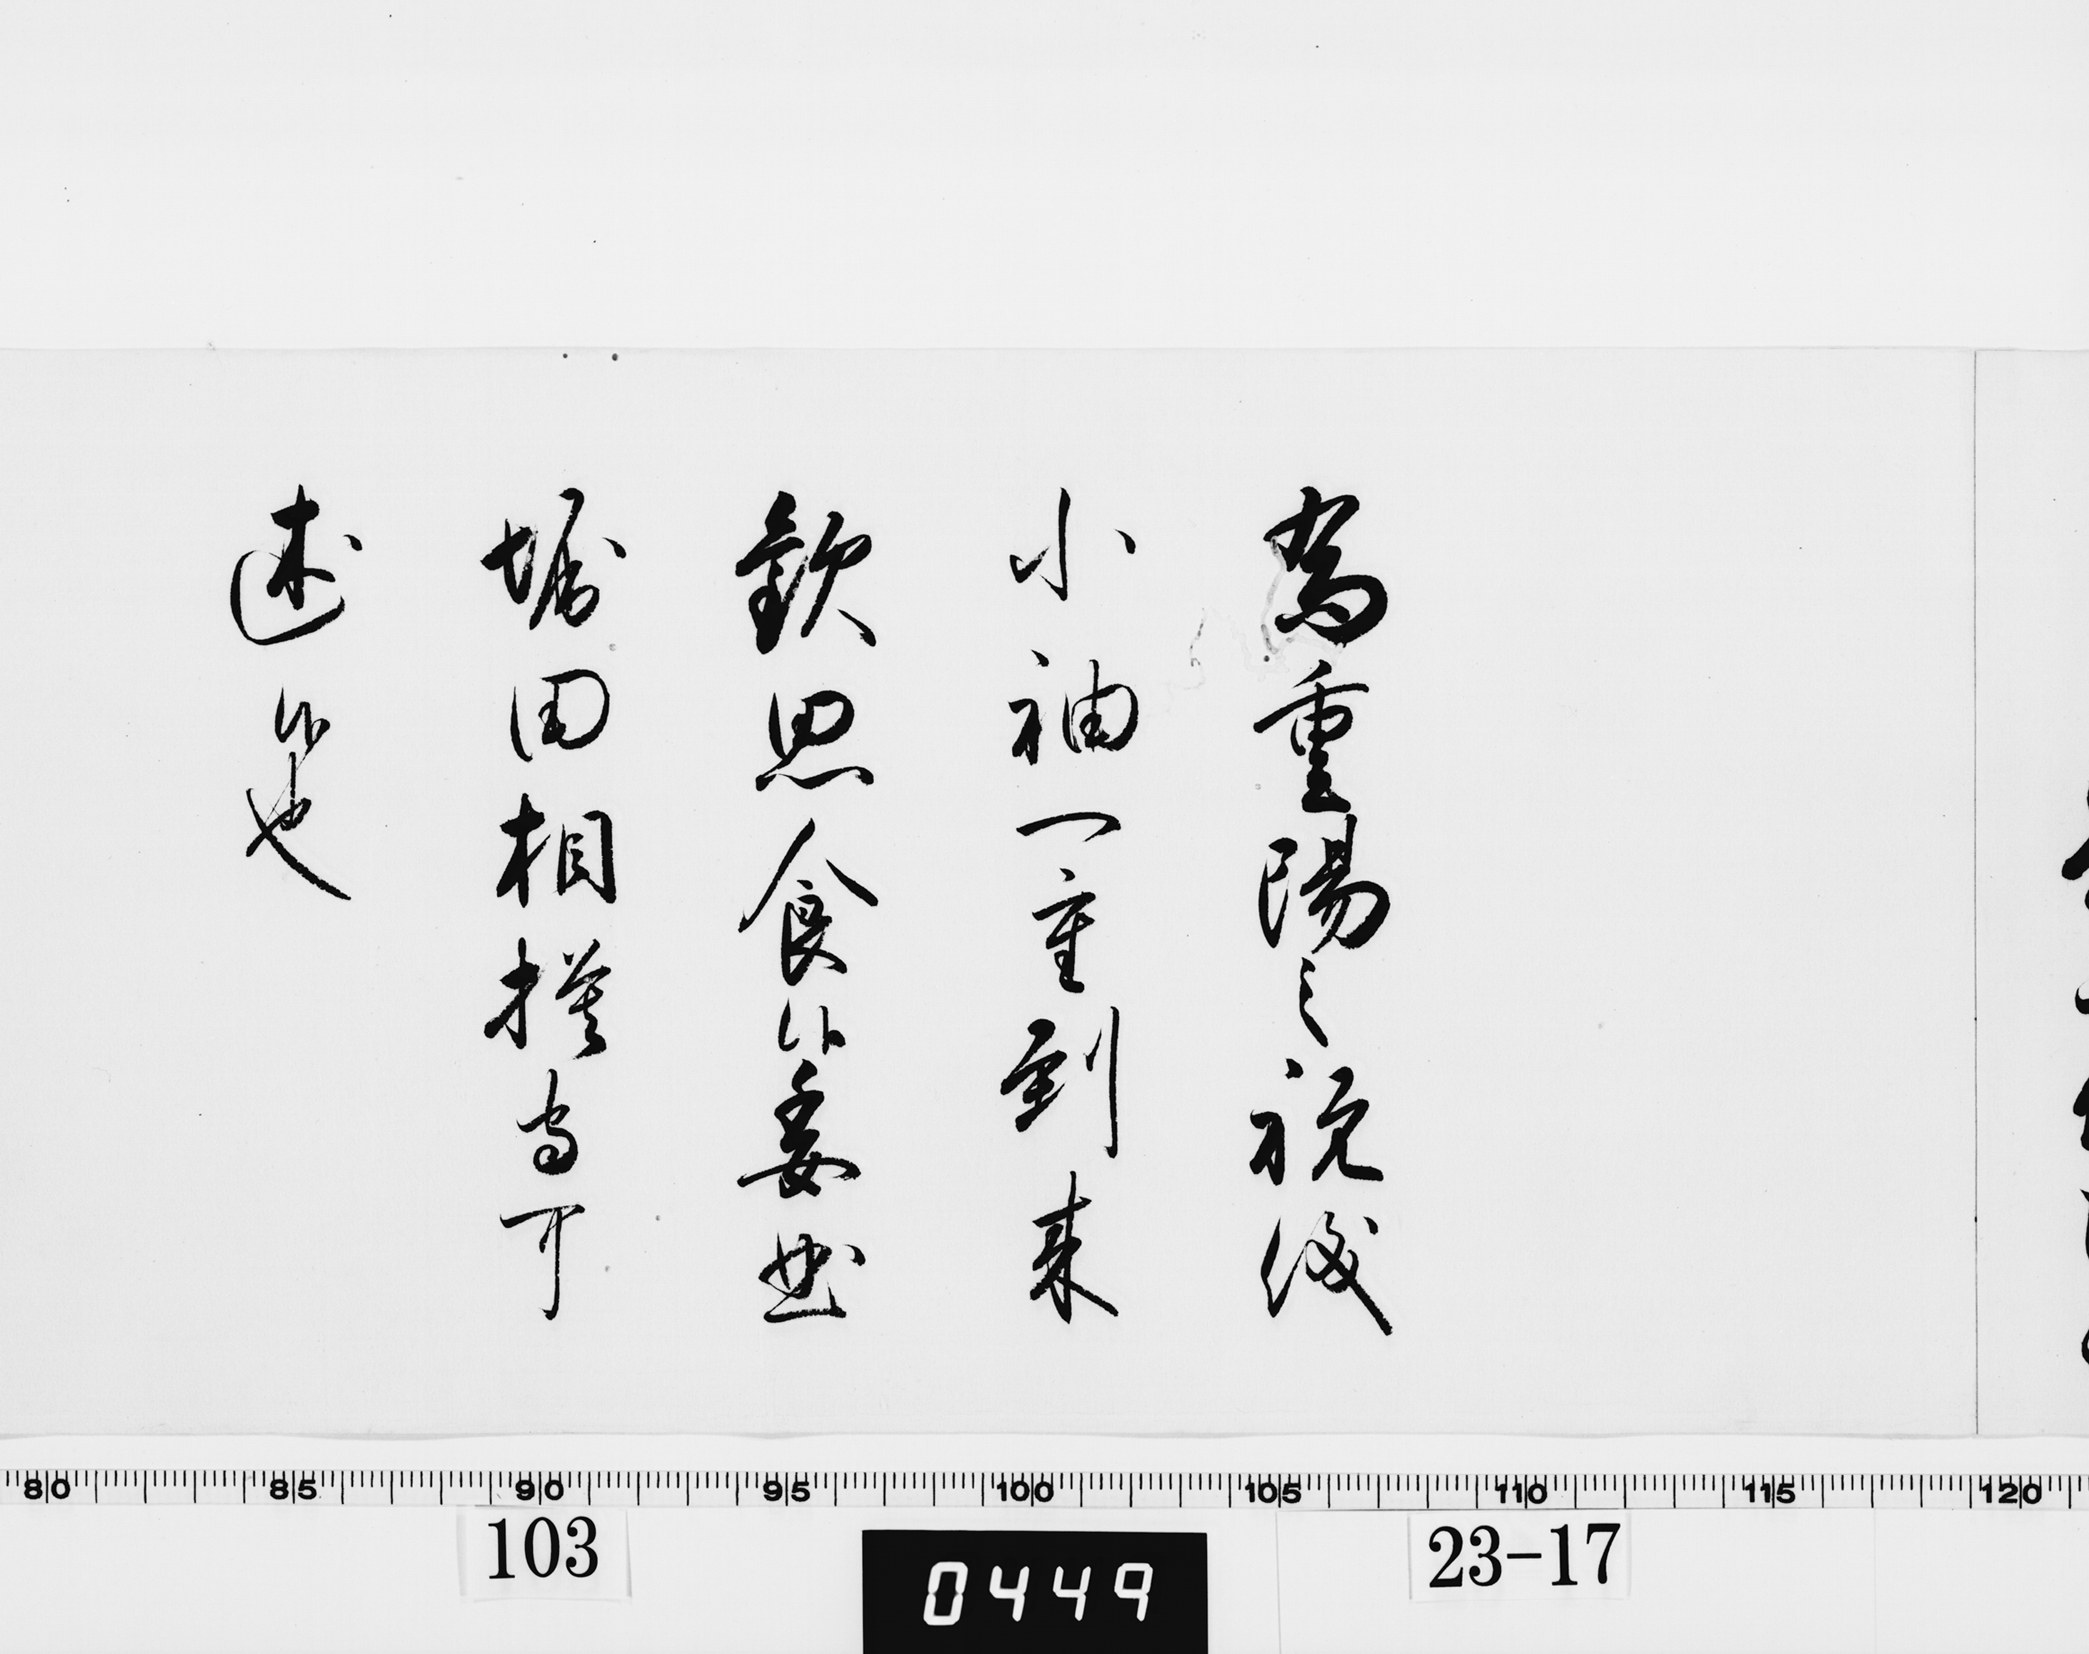 為重陽之祝儀
小袖一重到来
歓思食候委曲
堀田相模守可
述候也
80 85 90 95 100 105 110 115 120
103
0449
23-17